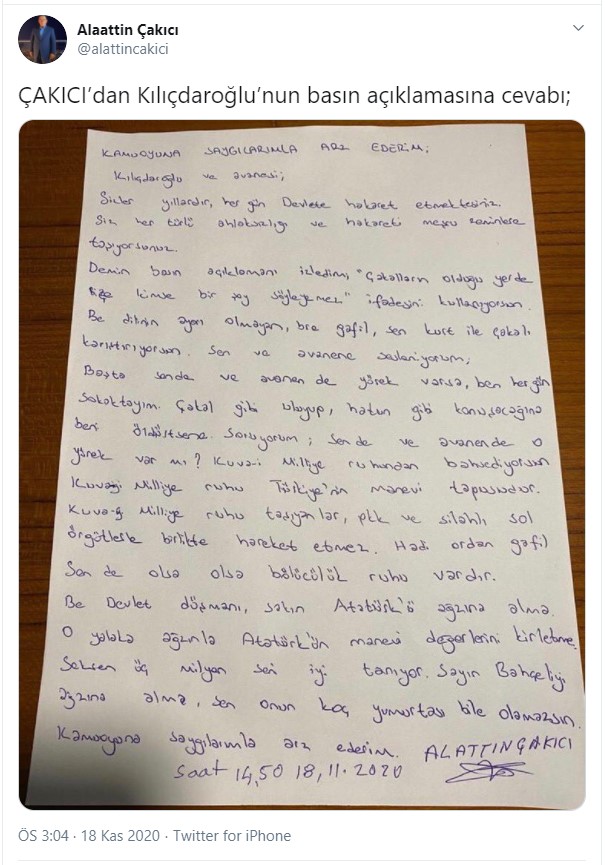 Alaattin Çakıcı
@alattincakici
ÇAKICI’dan Kılıçdaroğlu’nun basın açıklamasına cevabı;
KAMUOYUNA SAYGILARIMLA ARZ EDERİM;
Kılıçdaroğlu ve avanesi;
Sizler yıllardır, her gün Devlete hakaret etmektesiniz.
Siz her türlü ahlaksızlığı ve hakareti meşru zeminlere
taşıyorsunuz.
Demin basın açıklamanı izledim, "Çakalların olduğu yerde
bize kimse bir şey söyleyemez" ifadesini kullanıyorsun.
Be dilinin ayarı olmayan, bre gafil, sen kurt ile çakalı
karıştırıyorsun. Sen ve avanene sesleniyorum;
Başta sende ve avanen de yürek varsa, ben her gün
sokaktayım. Çakal gibi uluyup, hatun gibi konuşacağına
beni öldürtsene. Soruyorum; sende ve avanende o
yürek var mı? Kuva-i Milliye ruhundan bahsediyorsun
Kuvayi Milliye ruhu Türkiye'nin manevi tapusudur.
Kuva-yi Milliye ruhu taşıyanlar, pkk ve silahlı sol
örgütlerle birlikte hareket etmez. Hadi ordan gafil
Sen de olsa olsa bölücülük ruhu vardır.
Be Devlet düşmanı, sakın Atatürk'ü ağzına alma.
O yalaka ağzınla Atatürk'ün manevi değerlerini kirletme.
Seksen üç milyon seni iyi tanıyor. Sayın Bahçeliyi
ağzına alma, sen onun koç yumurtası bile olamazsın.
Kamuoyuna saygılarımla arz ederim. ALATTİN ÇAKICI
saat 14,50 18,11.2020
ÖS 3:04 · 18 Kas 2020 · Twitter for iPhone